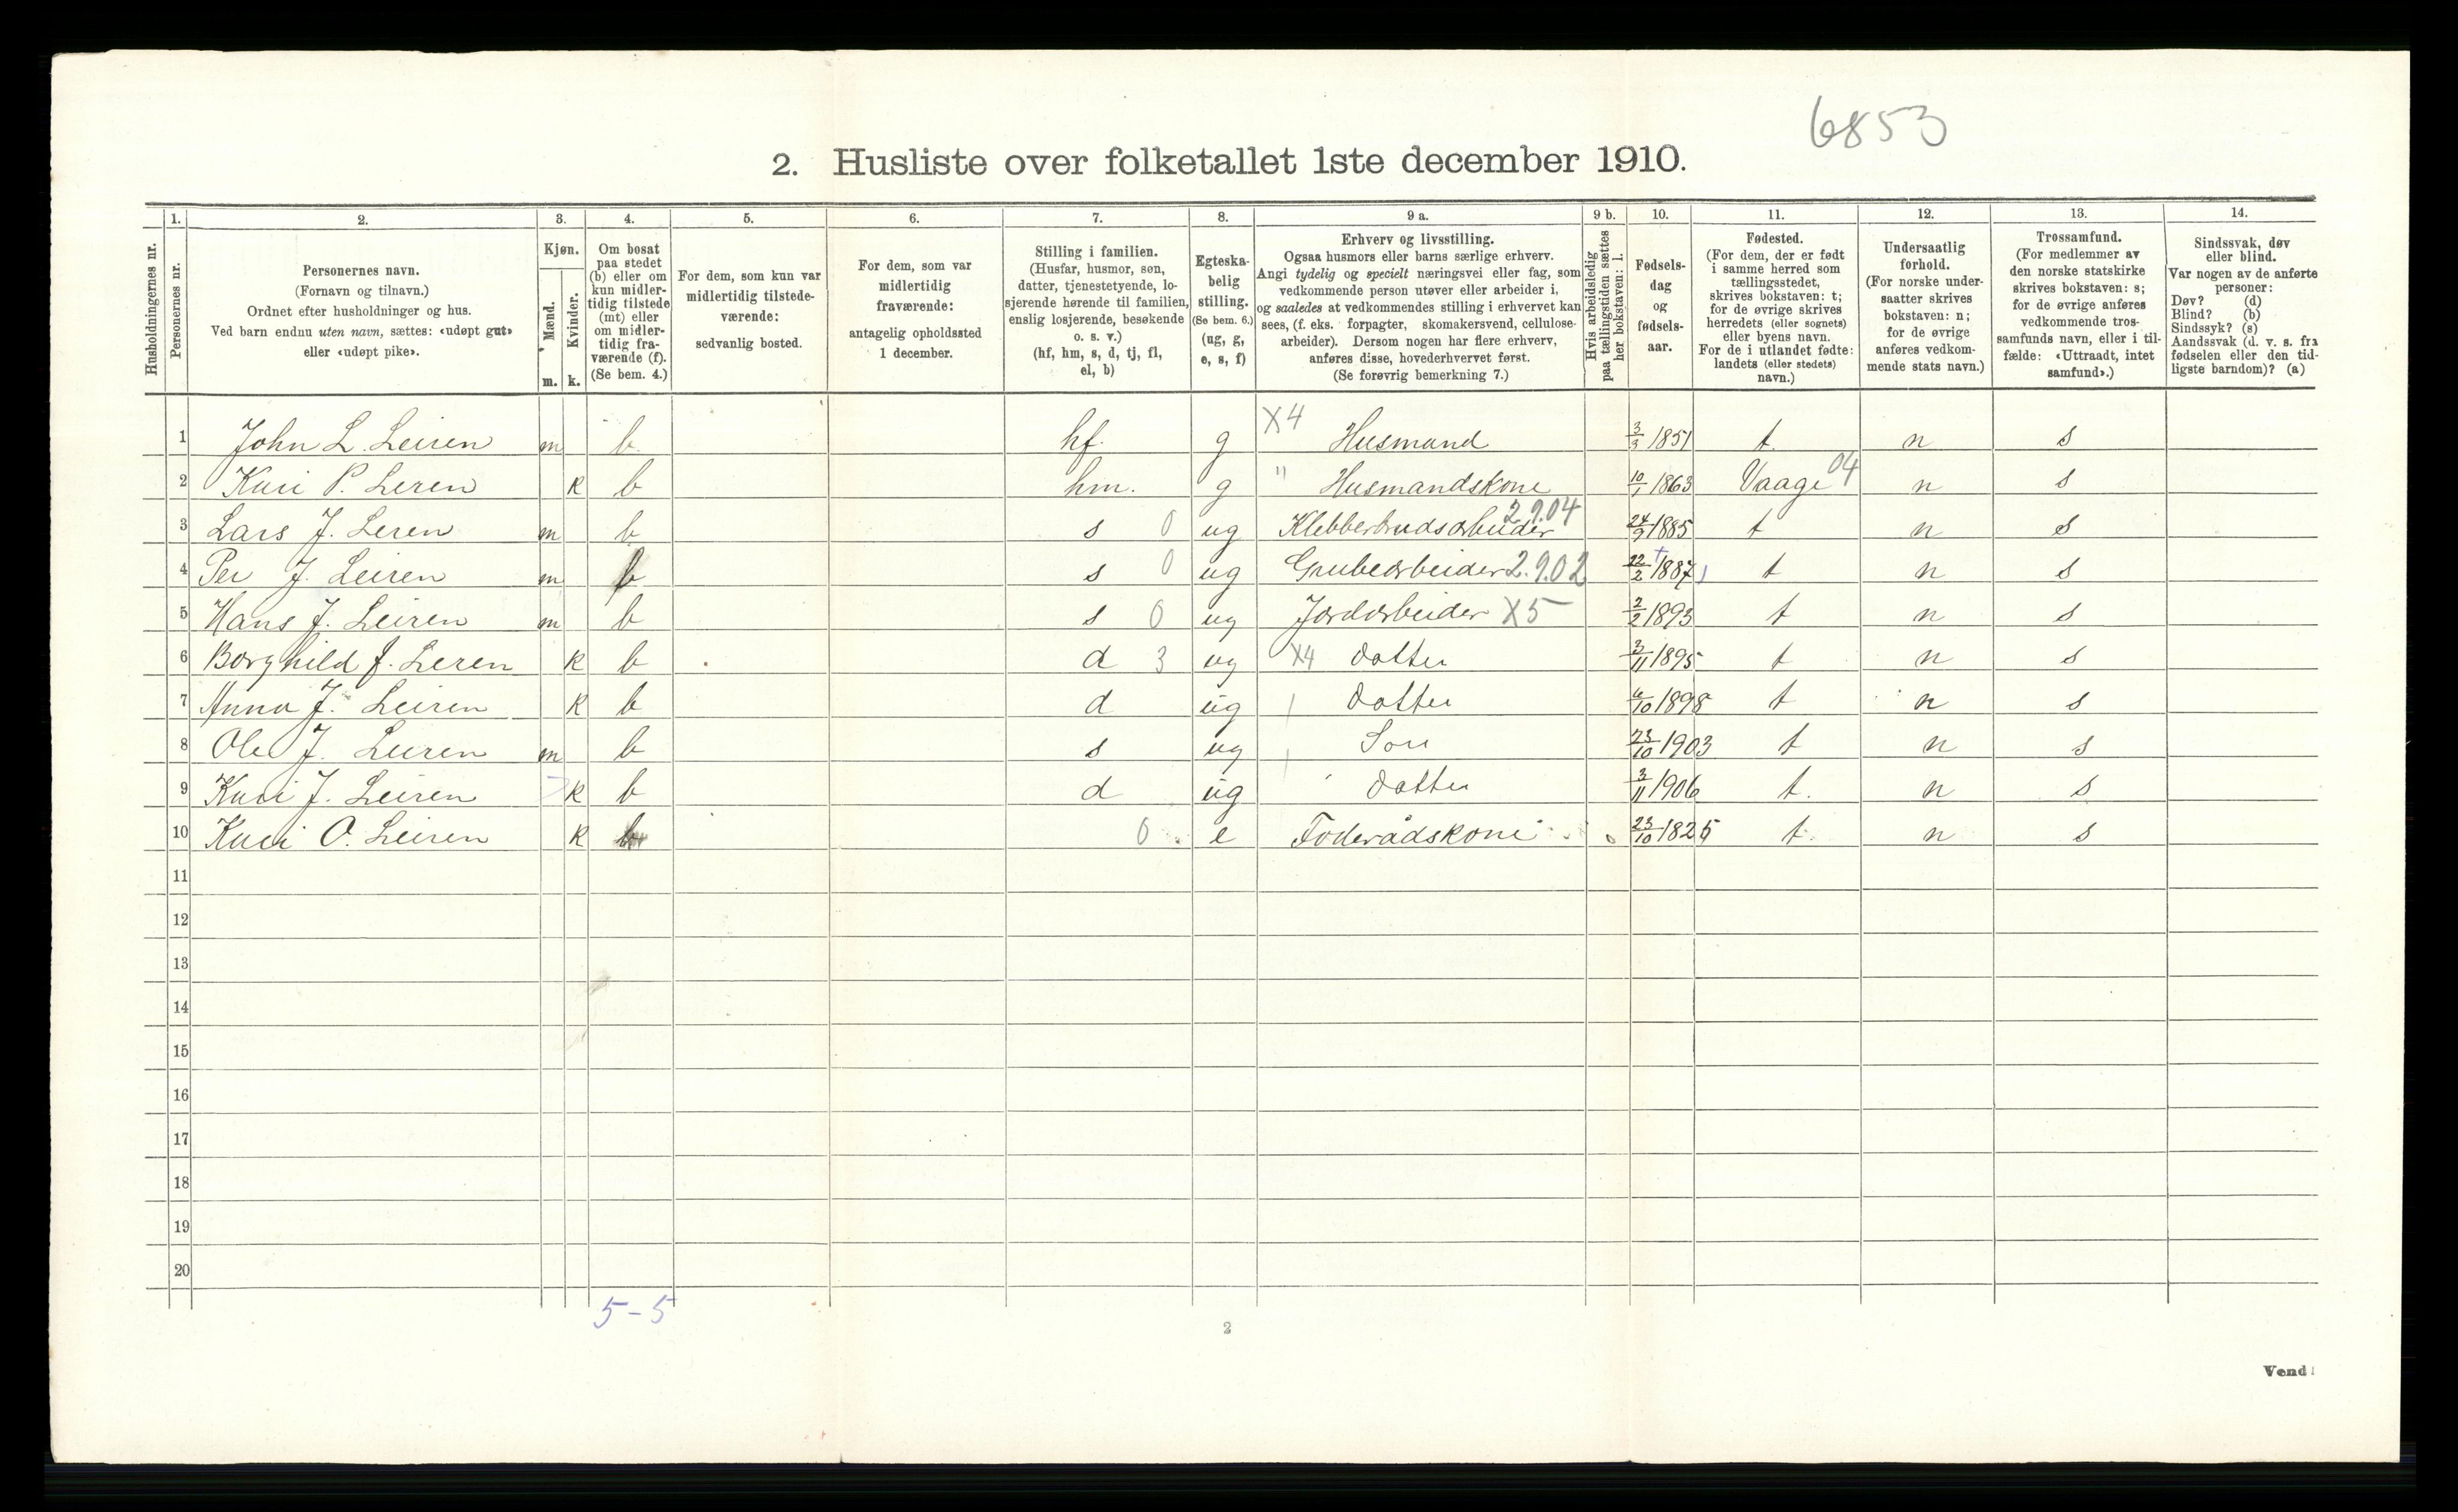 6853
2. Husliste over folketallet 1ste december 1910.
1. 2. 3. 4. 5. 6. 7. 8. 9 a. 9 b. 10. 11. 12. 13. 14.
Husholdningernes nr.
Personernes nr.
Personernes navn.
(Fornavn og tilnavn.)
Ordnet efter husholdninger og hus.
Ved barn endnu uten navn, sættes: «udøpt gut»
eller «udøpt pike».
Kjøn.
Mænd.
Kvinder.
m. k.
Om bosat
paa stedet
(b) eller om
kun midler-
tidig tilstede
(mt) eller
om midler-
tidig fra-
værende (f).
(Se bem. 4.)
For dem, som kun var
midlertidig tilstede-
værende:
sedvanlig bosted.
For dem, som var
midlertidig
fraværende:
antagelig opholdssted
1 december.
Stilling i familien.
(Husfar, husmor, søn,
datter, tjenestetyende, lo-
sjerende hørende til familien,
enslig losjerende, besøkende
o. s. v.)
(hf, hm, s, d, tj, fl,
el, b)
Egteska-
belig
stilling.
(Se bem. 6.)
(ug, g,
e, s, f)
Erhverv og livsstilling.
Ogsaa husmors eller barns særlige erhverv.
Angi tydelig og specielt næringsvei eller fag, som
vedkommende person utøver eller arbeider i,
og saaledes at vedkommendes stilling i erhvervet kan
sees, (f. eks. forpagter, skomakersvend, cellulose-
arbeider). Dersom nogen har flere erhverv,
anføres disse, hovederhvervet først.
(Se forøvrig bemerkning 7.)
Hvis arbeidsledig
paa tællingstiden sættes
her bokstaven: l.
Fødsels-
dag
og
fødsels-
aar.
Fødested.
(For dem, der er født
i samme herred som
tællingsstedet,
skrives bokstaven: t;
for de øvrige skrives
herredets (eller sognets)
eller byens navn.
For de i utlandet fødte:
landets (eller stedets)
navn.)
Undersaatlig
forhold.
(For norske under-
saatter skrives
bokstaven: n;
for de øvrige
anføres vedkom-
mende stats navn.)
Trossamfund.
(For medlemmer av
den norske statskirke
skrives bokstaven: s;
for de øvrige anføres
vedkommende tros-
samfunds navn, eller i til-
fælde: «Uttraadt, intet
samfund».)
Sindssvak, døv
eller blind.
Var nogen av de anførte
personer:
Døv? (d)
Blind? (b)
Sindssyk? (s)
Aandssvak (d. v. s. fra
fødselen eller den tid-
ligste barndom)? (a)
1 John L. Leiren m b hf. g X4 Husmand 3/3 1851 t. n s
2 Kari P. Leren k b hm. g " Husmandskone 10/1 1863 Vaage 04 n s
3 Lars J. Leren m b s 0 ug Klebberbrudsarbeider 2.9.04 24/9 1885 t n s
4 Per J. Leiren m b s 0 ug Grubearbeider 2.9.02 22/2 1887 t n s
5 Hans J. Leiren m b s 0 ug Jordarbeider X5 2/2 1893 t n s
6 Borghild J. Leren k b d 3 ug X4 datter 3/11 1895 t n s
7 Anna J. Leiren k b d ug datter 6/10 1898 t n s
8 Ole J. Leiren m b s ug Søn 23/10 1903 t n s
9 Kari J. Leiren k b d ug datter 3/11 1906 t. n s
10 Kari O. Leiren k b 0 e Foderådskone 23/10 1825 t. n s
11
12
13
14
15
16
17
18
19
20
5-5
2
Vend!